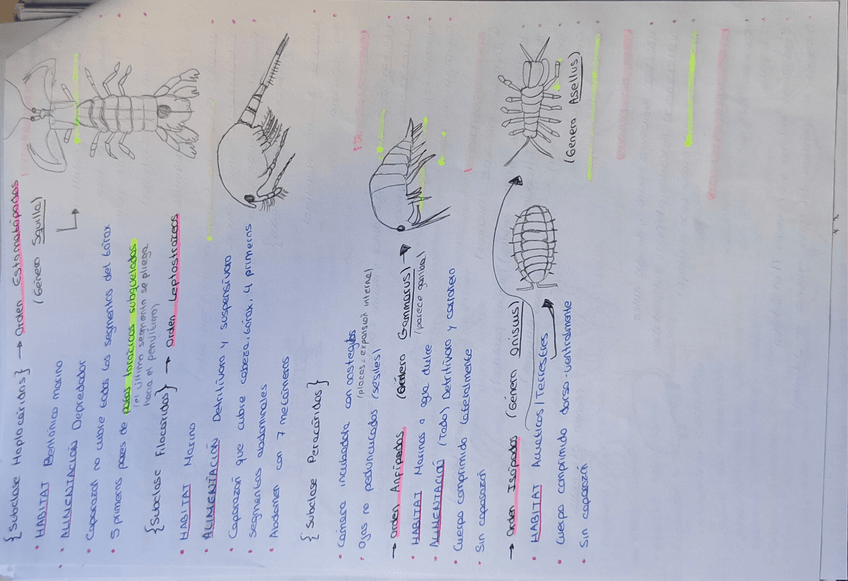 {Subclase Haplocáridos} → Orden Estomatópodos
(Género Squilla)
• HÁBITAT Bentónico marino
• ALIMENTACIÓN Depredador
Caparazón no cubre todos los segmentos del tórax
• 5 primeros pares de patas torácicas subqueladas
(el último segmento se pliega
hacia el penúltimo)
{Subclase Filocáridos} → Orden Leptostráceos
• HÁBITAT Marino
• ALIMENTACIÓN Detritívoro y suspensívoro
• Caparazón que cubre cabeza, tórax, 4 primeros
segmentos abdominales
• Abdomen con 7 metámeros
{Subclase Peracáridos}
• Cámara incubadora con oostegitos
(placas: expansión interna)
• Ojos no pedunculados (sésiles)
→ Orden Anfípodos (Género Gammarus) →
(parece gamba)
• HÁBITAT Marinos o agua dulce
ALIMENTACIÓN (Todo) Detritívoro y carroñero
• Cuerpo comprimido lateralmente
• Sin caparazón
→ Orden Isópodos (Género Oniscus)
(Género Asellus)
• HÁBITAT Acuáticos / Terrestres
• Cuerpo comprimido dorso-ventralmente
• Sin caparazón